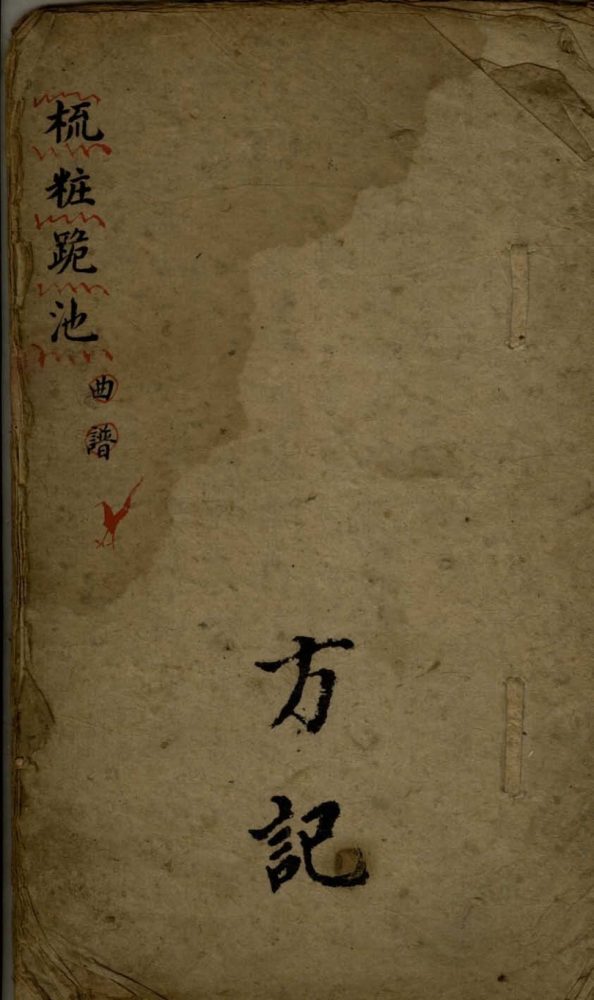 梳粧跪池
曲譜
方記